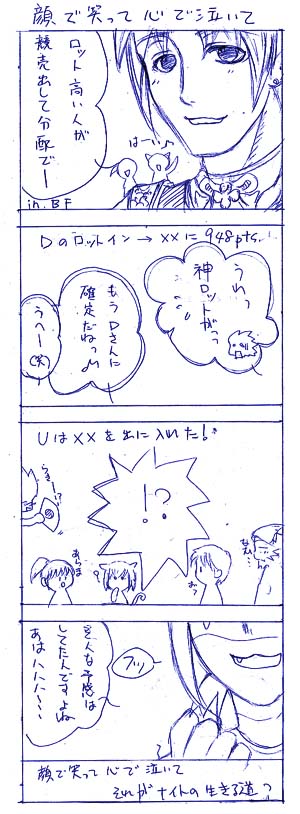 顔で笑って心で泣いて
ロット高い人が
競売出して分配でー
はーい♪
in.BF
Dのロットイン→××に948pts...
うわっ
神ロットがっ
もうDさんに
確定だねっ♪
うへー(笑)
Uは××を手に入れた!
!?
らき…!?
あらま
おっ
なぬ…
フッ
そんな予感は
してたんですよね
あはハハハ〜〜
顔で笑って心で泣いて
それがナイトの生きる道?